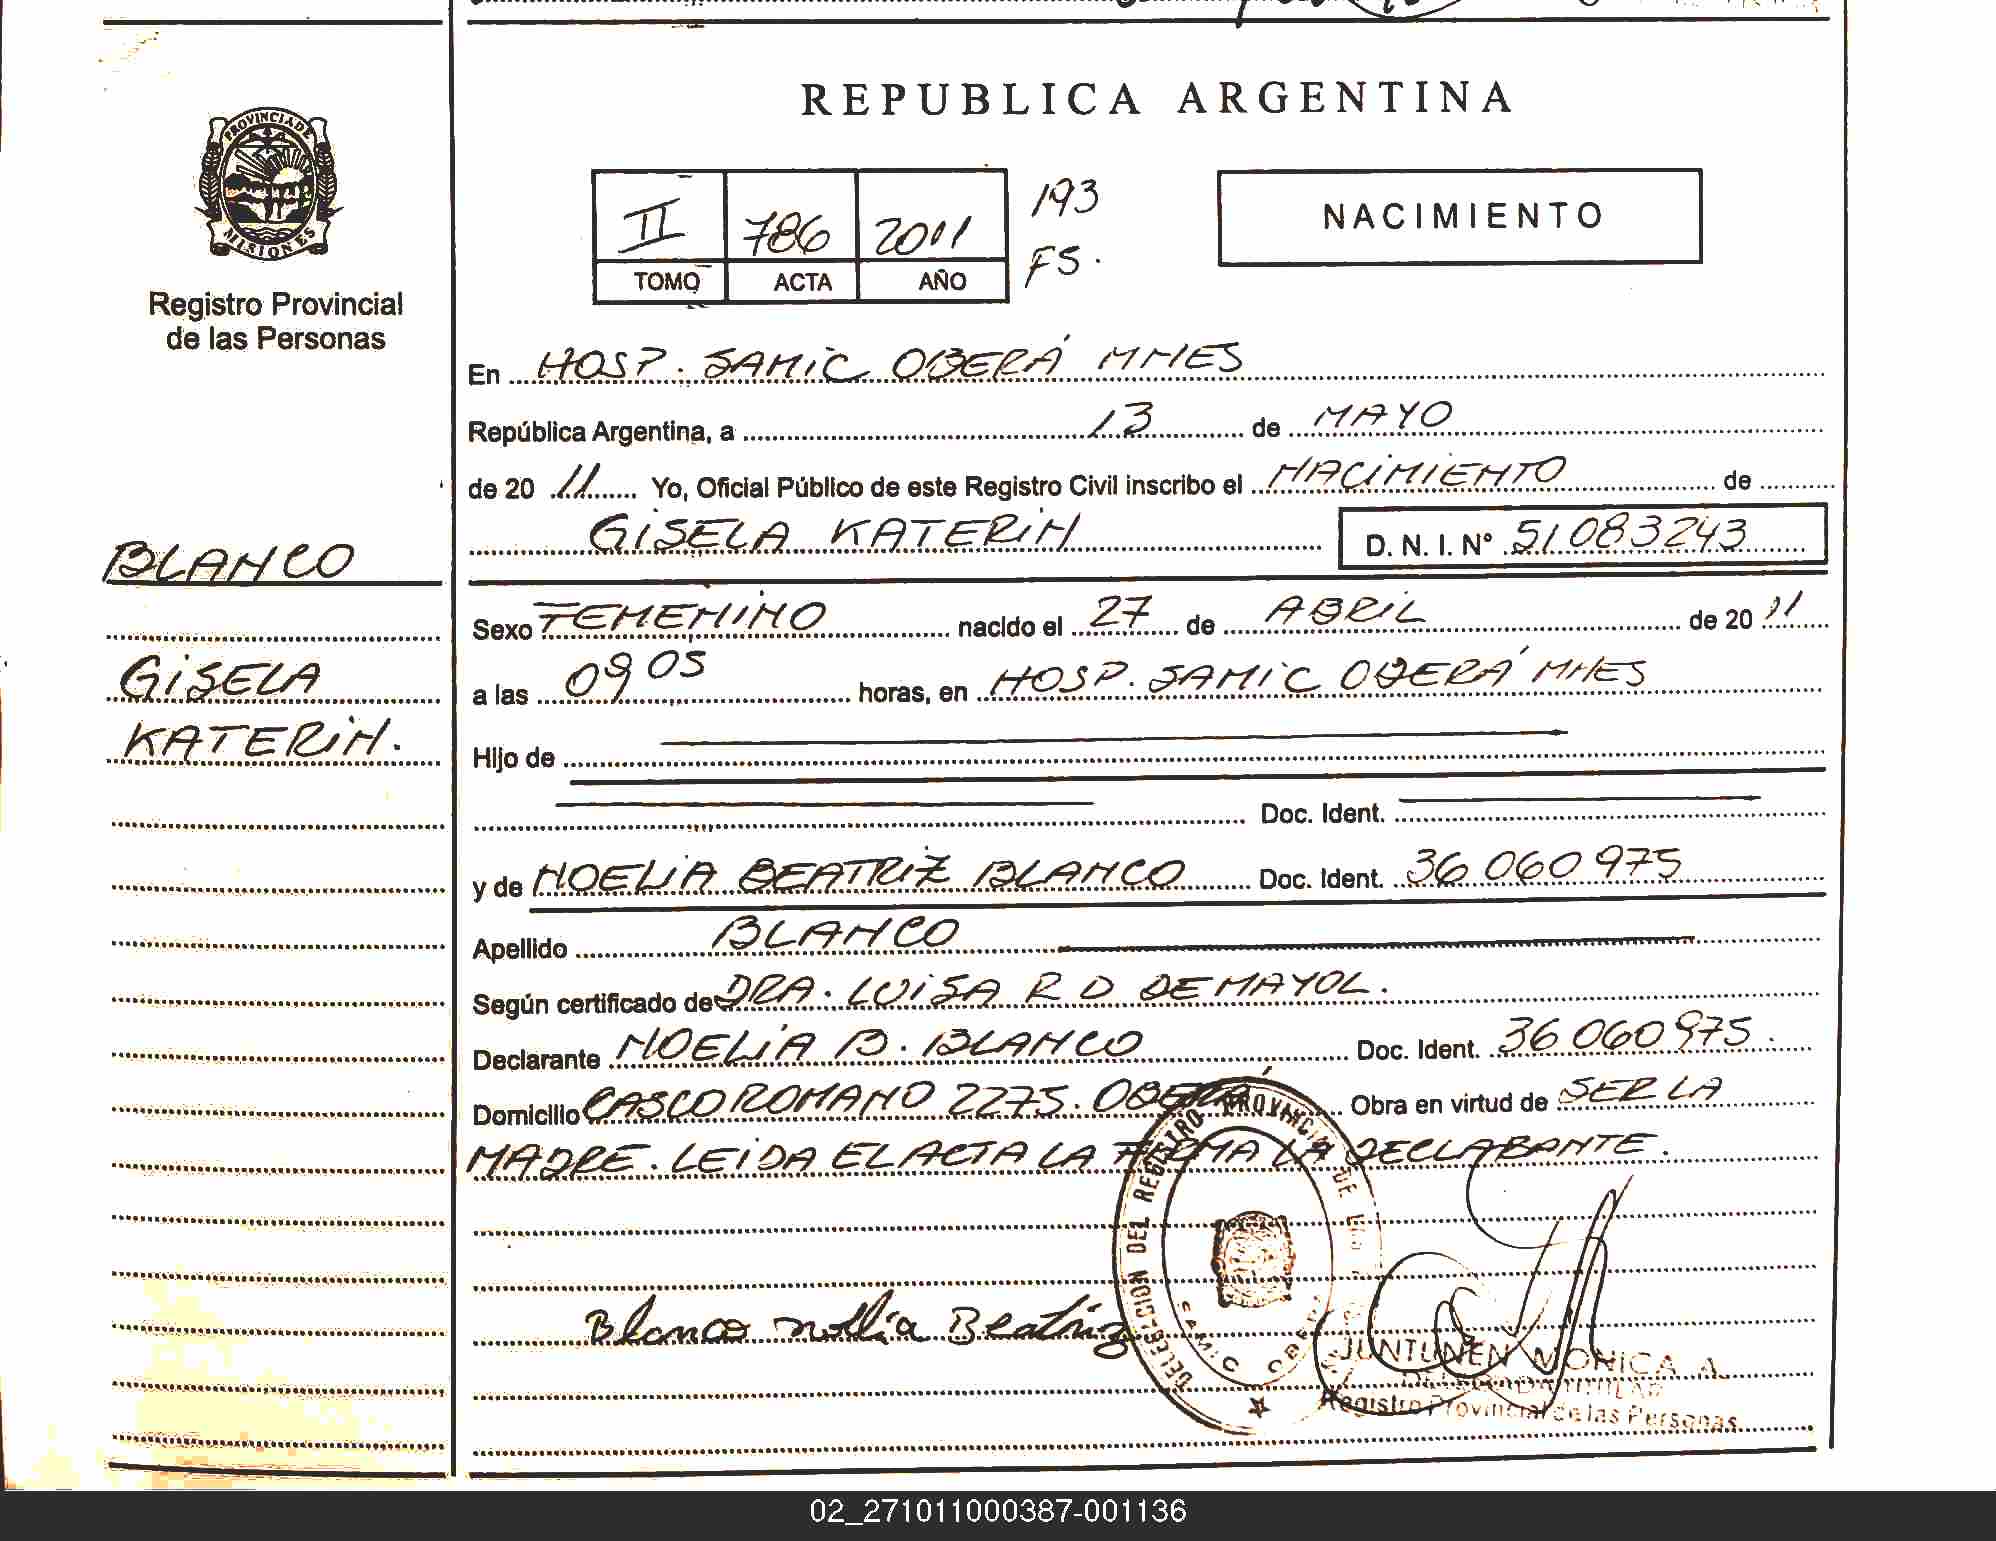 REPUBLICA ARGENTINA
PROVINCIA DE
MISIONES
Registro Provincial
de las Personas
II 786 2011 193
TOMO ACTA AÑO FS.
NACIMIENTO
En HOSP. SAMIC OBERÁ MNES
República Argentina, a 13 de MAYO
de 20 11 Yo, Oficial Público de este Registro Civil inscribo el NACIMIENTO de
GISELA KATERIN D. N. I. Nº 51083243
BLANCO
GISELA
KATERIN.
Sexo FEMENINO nacido el 27 de ABRIL de 20 11
a las 09 05 horas, en HOSP. SAMIC OBERÁ MNES
Hijo de
Doc. Ident.
y de NOELIA BEATRIZ BLANCO Doc. Ident. 36 060 975
Apellido BLANCO
Según certificado de DRA. LUISA R D DEMAYOL.
Declarante NOELIA B. BLANCO Doc. Ident. 36 060 975.
Domicilio CASCO ROMANO 2275. OBERÁ Obra en virtud de SER LA
MADRE. LEIDA EL ACTA LA FIRMA LA DECLARANTE.
DELEGACION DEL REGISTRO PROVINCIAL DE
SAMIC OBERA
Blanco Noelia Beatriz
JUNTUNEN MONICA A.
DELEGADA TITULAR
Registro Provincial de las Personas
02_271011000387-001136